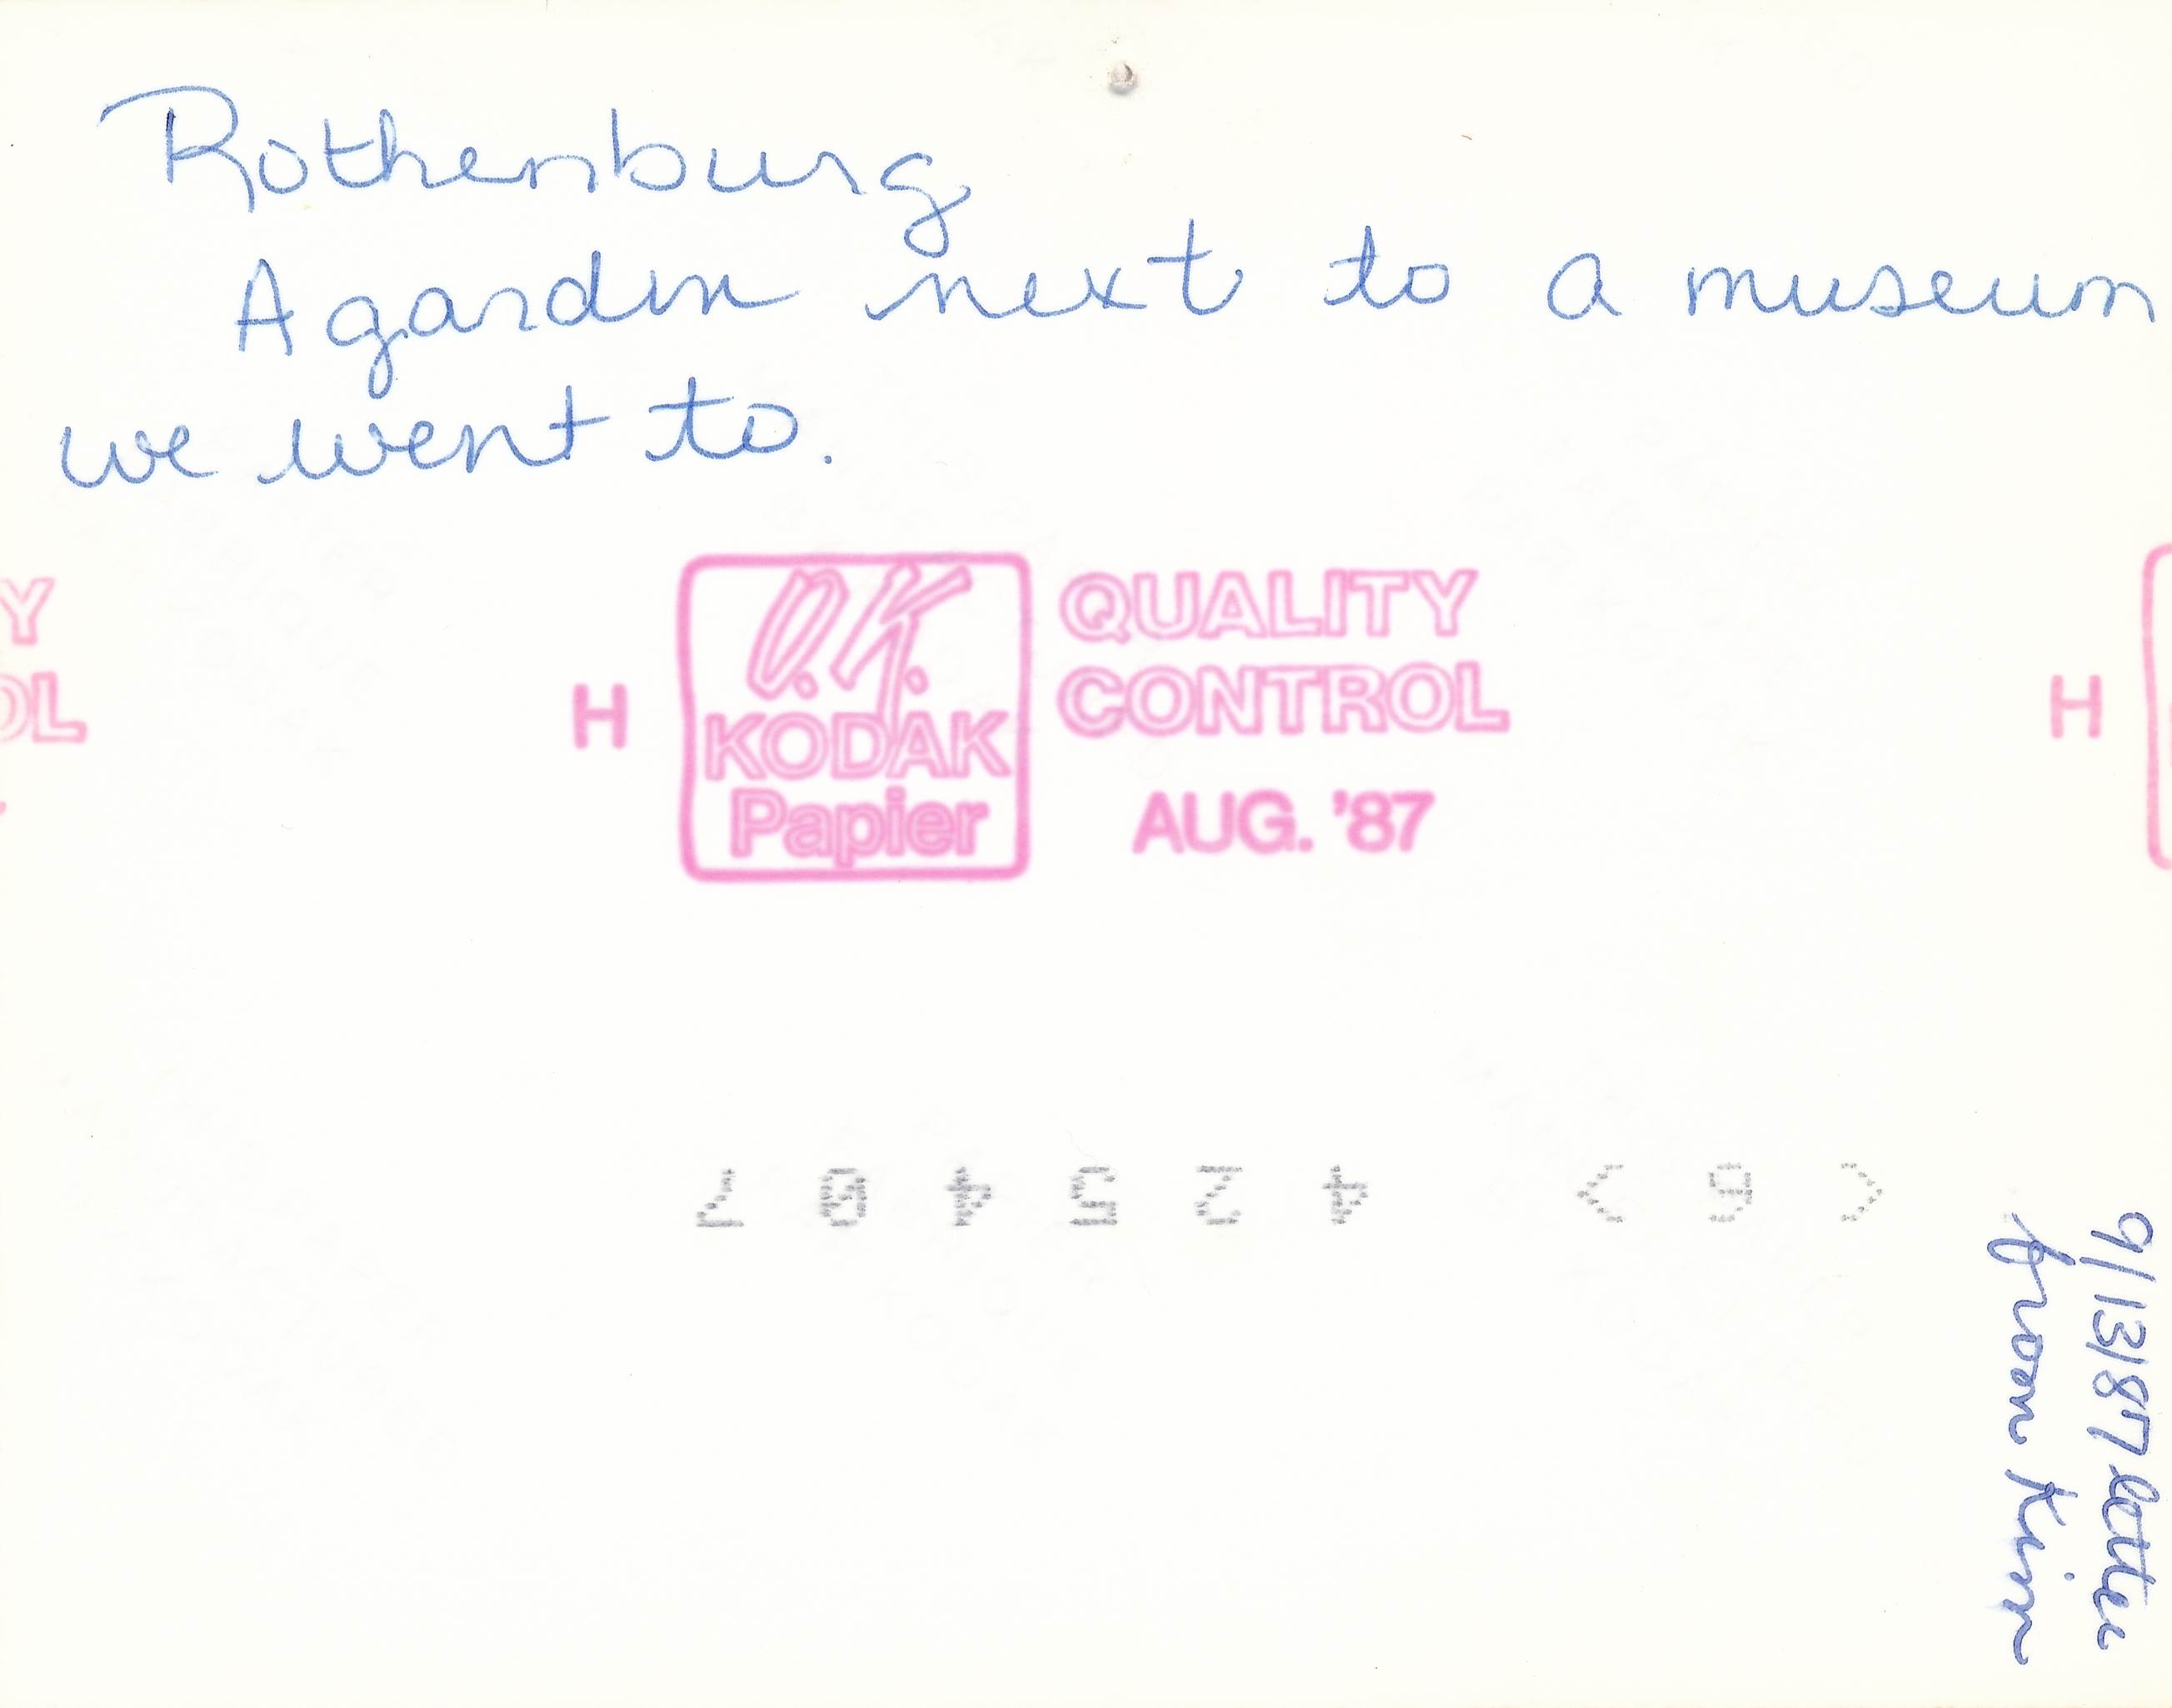 Rothenburg
A garden next to a museum
we went to.
Y
OL
H
O.K.
KODAK
Papier
QUALITY
CONTROL
AUG. '87
H
704524 < 6 >
9/13/87 letter
from Kim